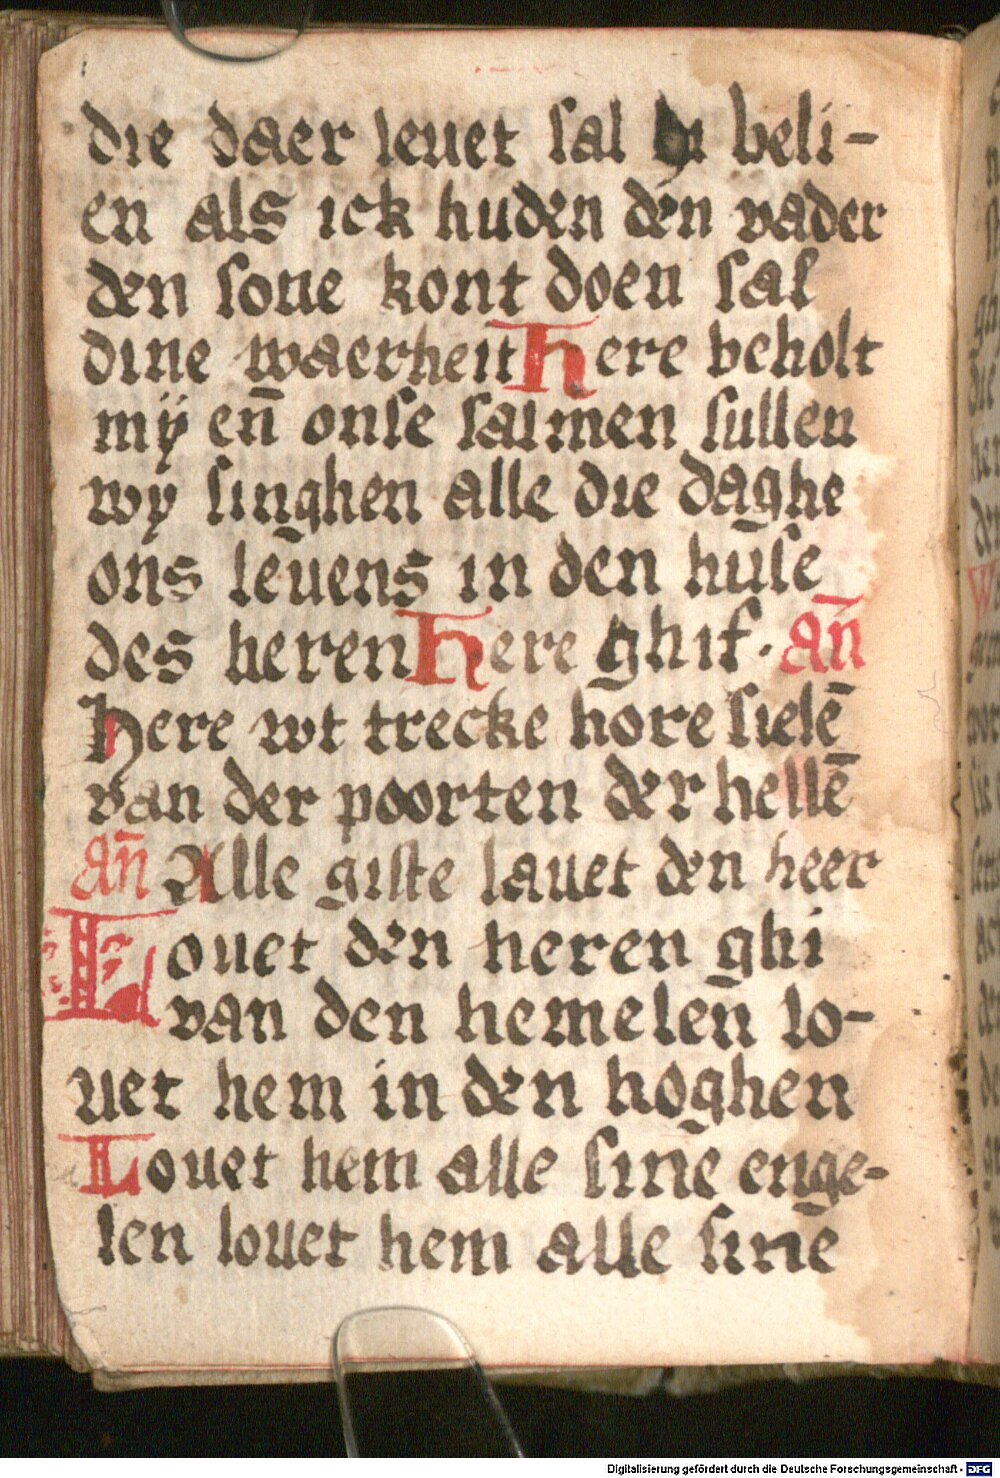 die daer leuet sal di beli-
en als ick huden den vader
den sone kont doen sal
dine waerheit Here beholt
mÿ en̄ onse salmen sullen
wy singhen alle die daghe
ons leuens in den huse
des heren Here ghif · an̄
Here wt trecke hore sielē
van der poorten der hellē
an̄ Alle giste lauet den heer
Louet den heren ghi
van den hemelen lo-
uet hem in den hoghen
Louet hem alle sine enge-
len louet hem alle sine
Digitalisierung gefördert durch die Deutsche Forschungsgemeinschaft - DFG